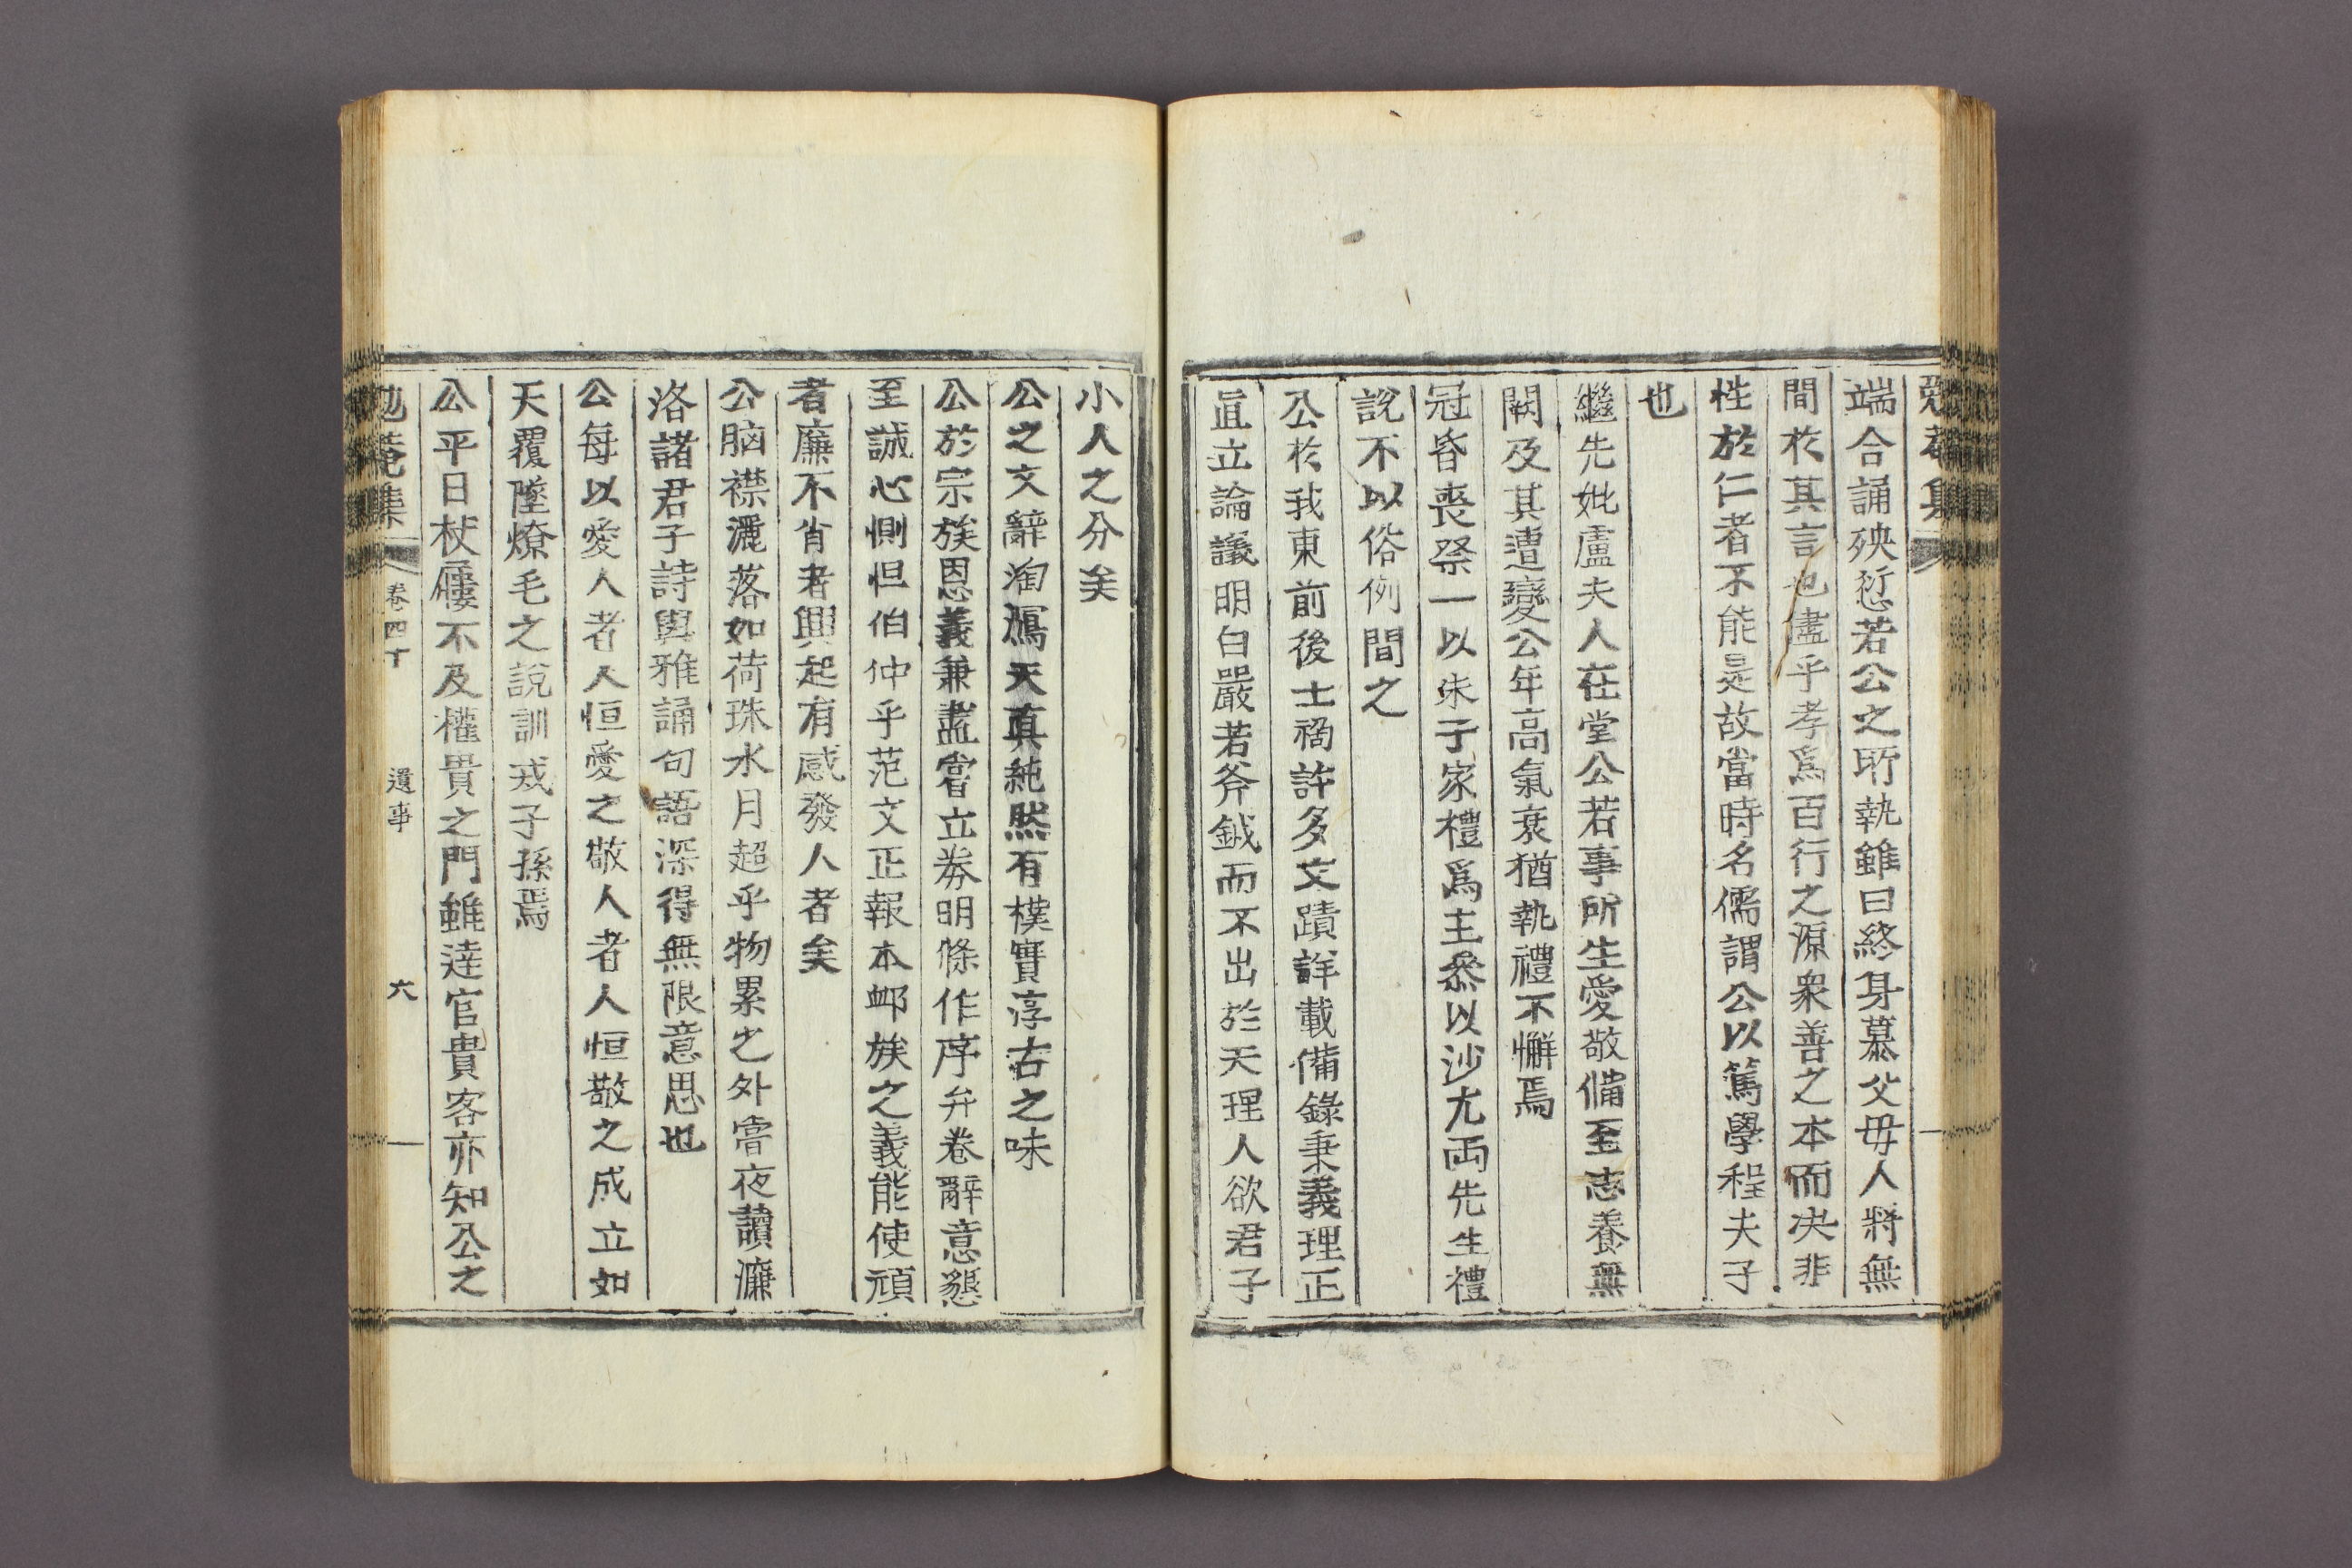 端合誦殃愆若公之所執雖曰終身慕父毋人將無
間於其言也儘乎孝爲百行之源衆善之本而决非
性於仁者不能是故當時名儒謂公以篤學程夫子
也
繼先妣盧夫人在堂公若事所生愛敬備至志養無
闕及其遭變公年高氣衰猶執禮不懈焉
冠昏喪祭一以朱子家禮爲主叅以沙尤両先生禮
說不以俗例間之
公於我東前後士禍許多文蹟詳載備錄秉義理正
直立論議明白嚴若斧鉞而不出於天理人欲君子
小人之分矣
公之文辭淘瀉天眞純然有樸實淳古之味
公於宗族恩義兼盡甞立券明條作序弁卷辭意懇
至誠心惻怛伯仲乎范文正報本邺族之義能使頑
者廉不肖者興起有感發人者矣
公脑襟灑落如荷珠水月超乎物累之外甞夜讀濂
洛諸君子詩與雅誦句語深得無限意思也
公每以愛人者人恒愛之敬人者人恒敬之成立如
天覆墜燎毛之說訓戒子孫焉
公平日杖屨不及權貴之門雖逹官貴客亦知公之
卷四十
遺事
六